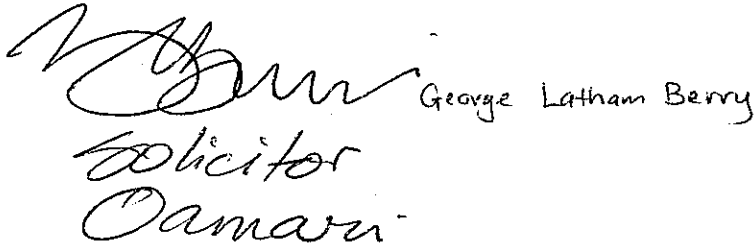 George Latham Berry
Solicitor
Oamaru